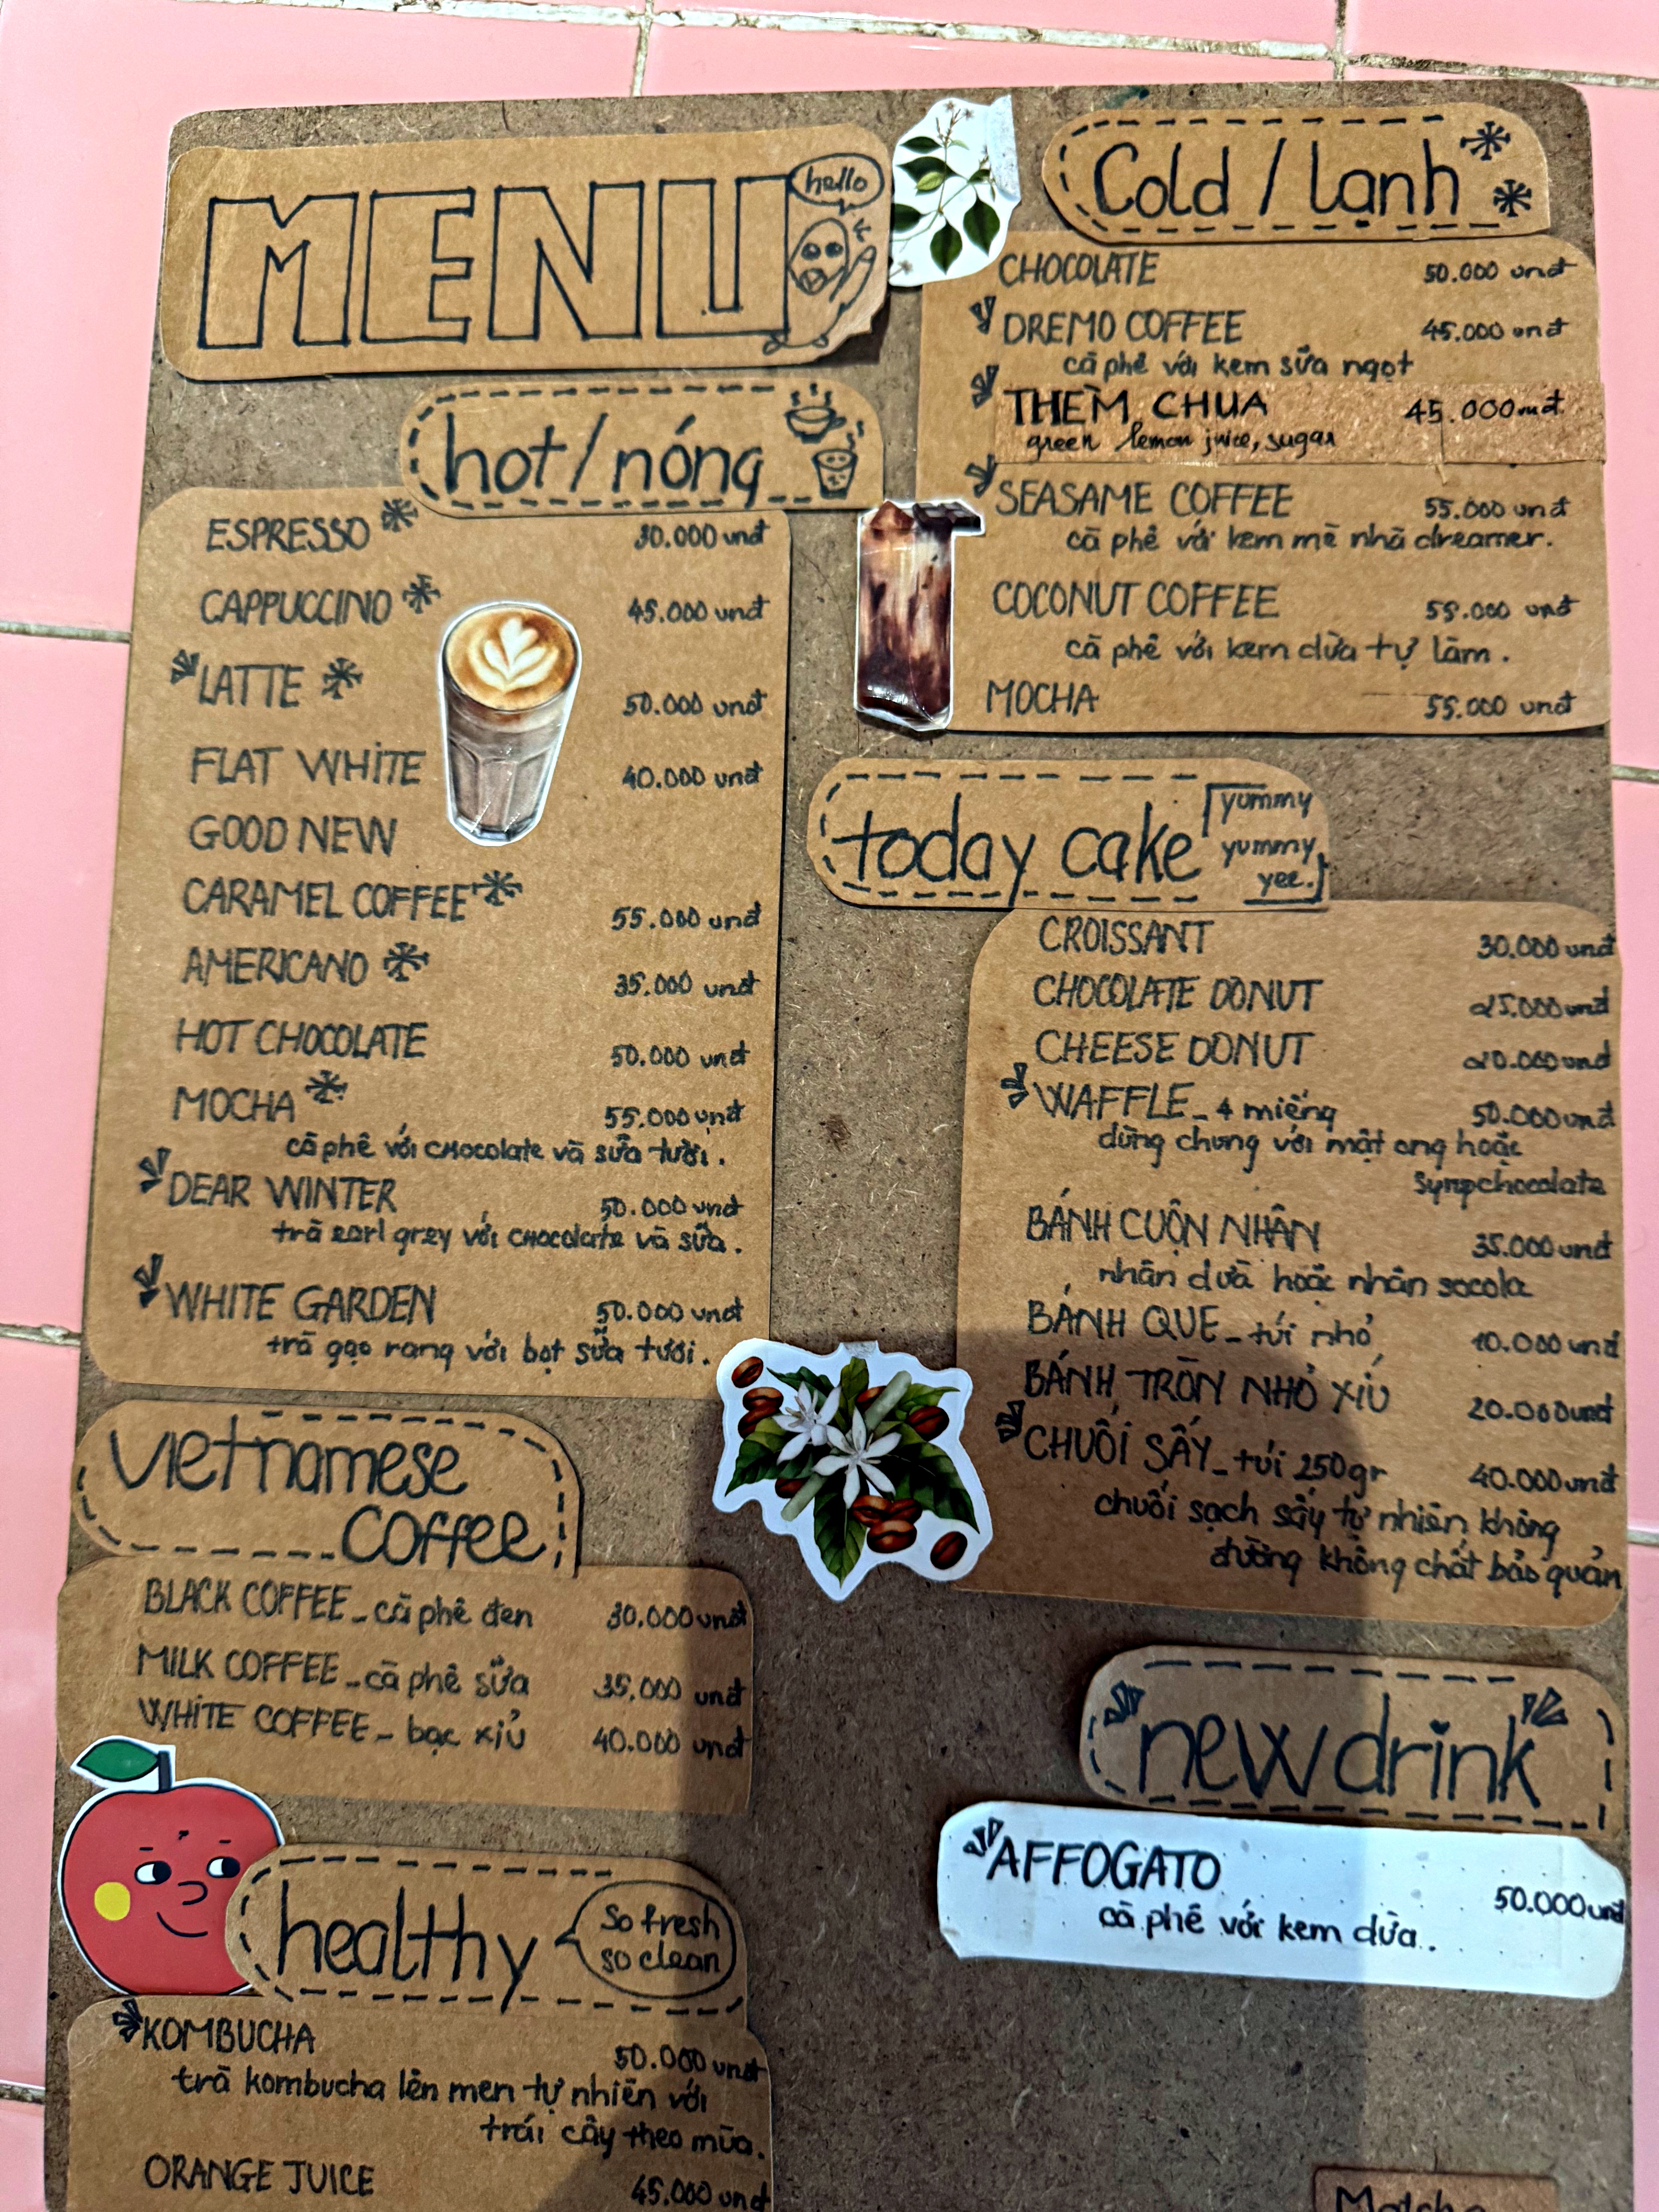 MENU
hello
hot/nóng
ESPRESSO 30.000 vnđ
CAPPUCCINO 45.000 vnđ
LATTE 50.000 vnđ
FLAT WHITE 40.000 vnđ
GOOD NEW
CARAMEL COFFEE 55.000 vnđ
AMERICANO 35.000 vnđ
HOT CHOCOLATE 50.000 vnđ
MOCHA 55.000 vnđ
cà phê với chocolate và sữa tươi.
DEAR WINTER 50.000 vnđ
trà earl grey với chocolate và sữa.
WHITE GARDEN 50.000 vnđ
trà gạo rang với bọt sữa tươi.
vietnamese
coffee
BLACK COFFEE - cà phê đen 30.000 vnđ
MILK COFFEE - cà phê sữa 35.000 vnđ
WHITE COFFEE - bạc xỉu 40.000 vnđ
healthy
So fresh
so clean
KOMBUCHA 50.000 vnđ
trà kombucha lên men tự nhiên với
trái cây theo mùa.
ORANGE JUICE 45.000 vnđ
Cold / lạnh
CHOCOLATE 50.000 vnđ
DREMO COFFEE 45.000 vnđ
cà phê với kem sữa ngọt
THÈM CHUA 45.000 vnđ
green lemon juice, sugar
SEASAME COFFEE 55.000 vnđ
cà phê với kem mè nhà dreamer.
COCONUT COFFEE 55.000 vnđ
cà phê với kem dừa tự làm.
MOCHA 55.000 vnđ
today cake
yummy
yummy
yee.
CROISSANT 30.000 vnđ
CHOCOLATE DONUT 25.000 vnđ
CHEESE DONUT 20.000 vnđ
WAFFLE - 4 miếng 50.000 vnđ
dùng chung với mật ong hoặc
syrup chocolate
BÁNH CUỘN NHÂN 35.000 vnđ
nhân dừa hoặc nhân socola
BÁNH QUE - túi nhỏ 10.000 vnđ
BÁNH TRÒN NHỎ XÍU 20.000 vnđ
CHUỐI SẤY - túi 250gr 40.000 vnđ
chuối sạch sấy tự nhiên không
đường không chất bảo quản
new drink
AFFOGATO 50.000 vnđ
cà phê với kem dừa.